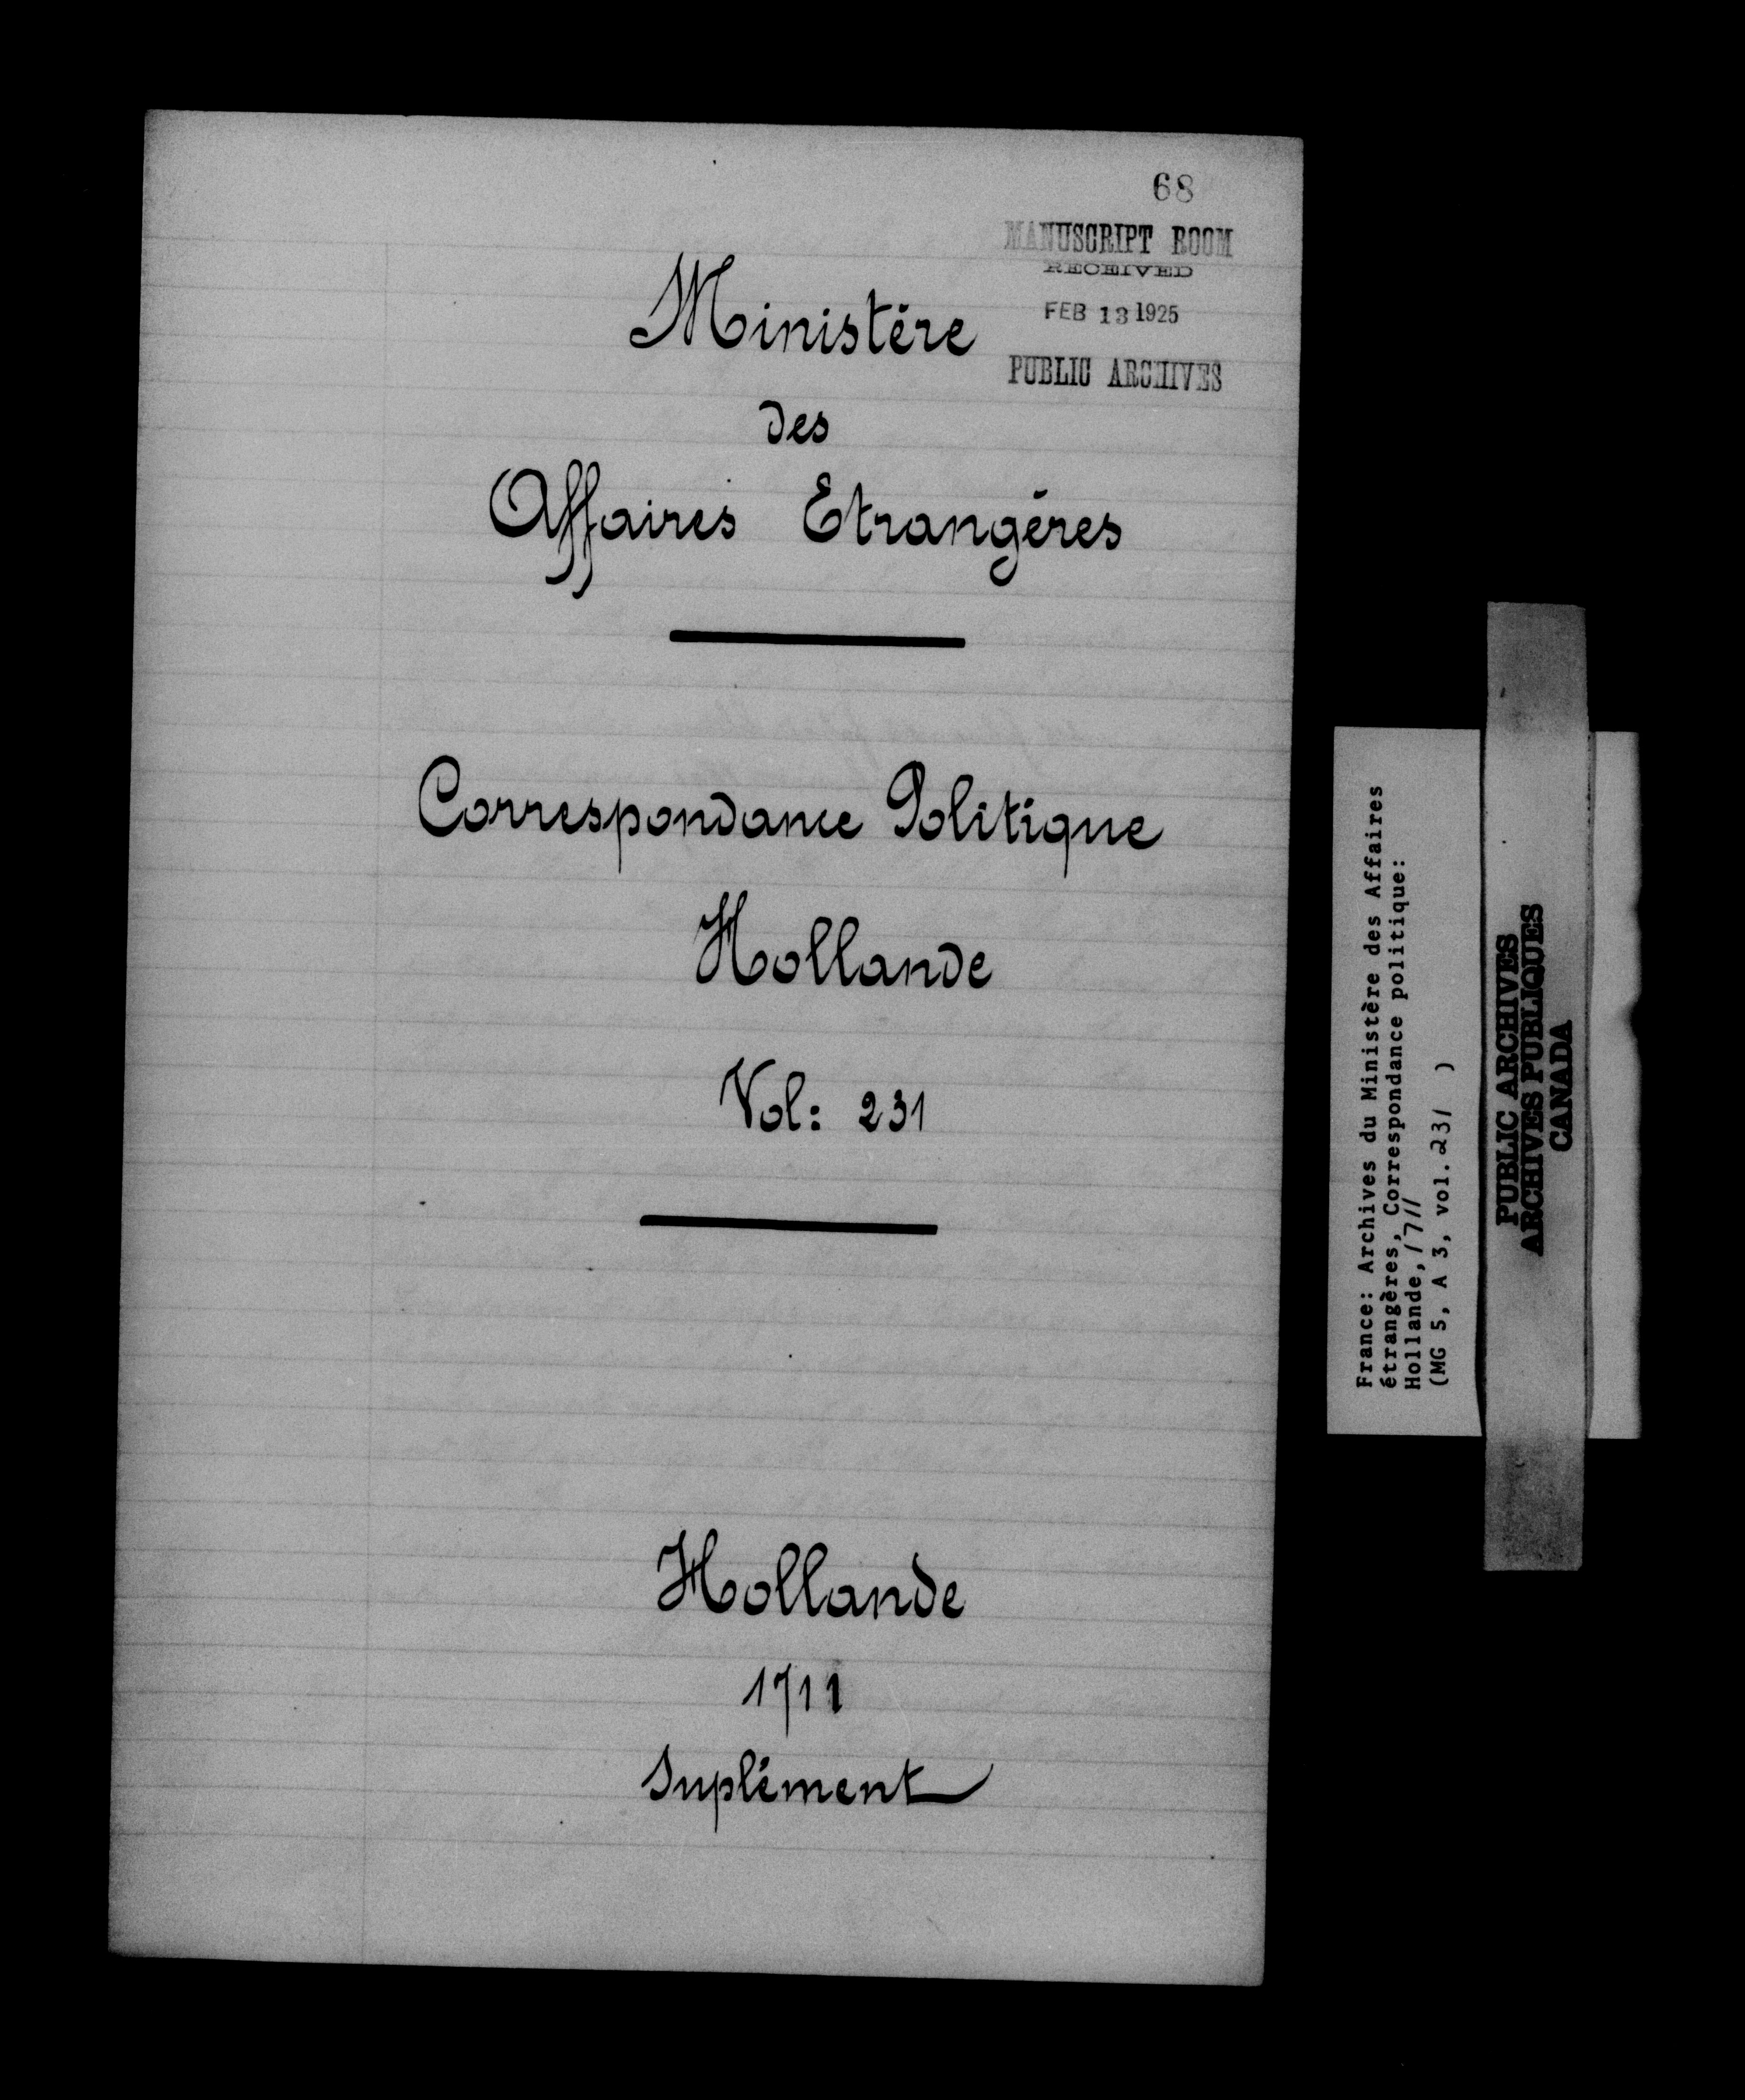 68
MANUSCRIPT ROOM
RECEIVED
FEB 13 1925
PUBLIC ARCHIVES
Ministère
des
Affaires Etrangères
Correspondance Politique
Hollande
Vol: 231
Hollande
1711
Suplément
France: Archives du Ministère des Affaires
étrangères, Correspondance politique:
Hollande, 1711
(MG 5, A 3, vol. 231 )
PUBLIC ARCHIVES
ARCHIVES PUBLIQUES
CANADA